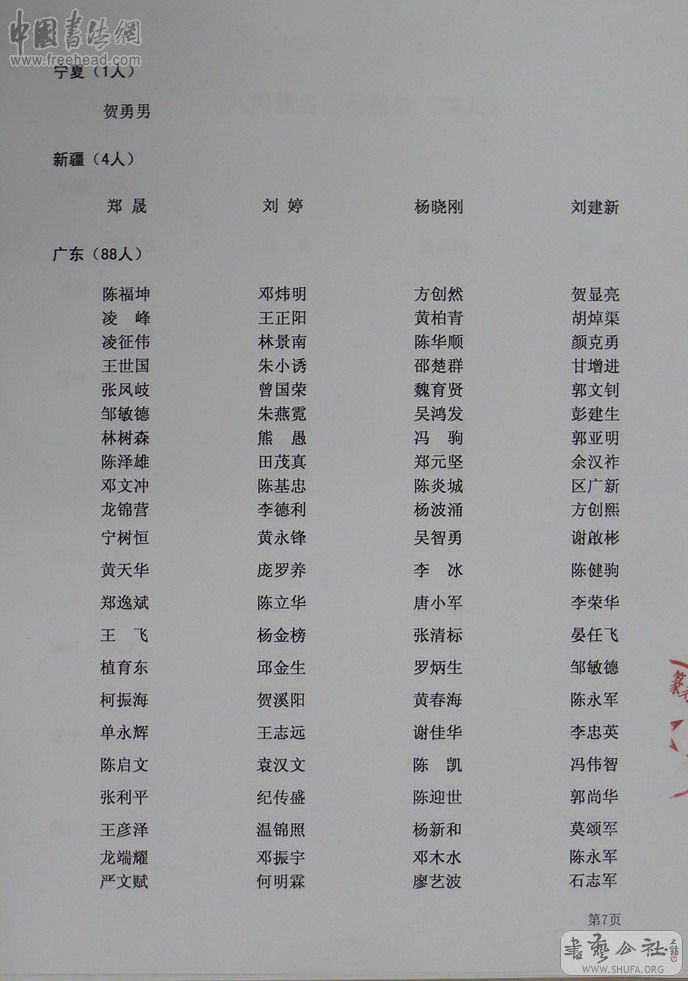 中國书法網
www.freehead.com
宁夏（1人）
贺勇男
新疆（4人）
郑 晟 刘 婷 杨晓刚 刘建新
广东（88人）
陈福坤 邓炜明 方创然 贺显亮
凌 峰 王正阳 黄柏青 胡焯渠
凌征伟 林景南 陈华顺 颜克勇
王世国 朱小诱 邵楚群 甘增进
张凤岐 曾国荣 魏育贤 郭文钊
邹敏德 朱燕霓 吴鸿发 彭建生
林树森 熊 愚 冯 驹 郭亚明
陈泽雄 田茂真 郑元坚 余汉祚
邓文冲 陈基忠 陈炎城 区广新
龙锦营 李德利 杨波涌 方创熙
宁树恒 黄永锋 吴智勇 谢啟彬
黄天华 庞罗养 李 冰 陈健驹
郑逸斌 陈立华 唐小军 李荣华
王 飞 杨金榜 张清标 晏任飞
植育东 邱金生 罗炳生 邹敏德
柯振海 贺溪阳 黄春海 陈永军
单永辉 王志远 谢佳华 李忠英
陈启文 袁汉文 陈 凯 冯伟智
张利平 纪传盛 陈迎世 郭尚华
王彦泽 温锦照 杨新和 莫颂军
龙端耀 邓振宇 邓木水 陈永军
严文赋 何明霖 廖艺波 石志军
第7页
书艺公社
WWW.SHUFA.ORG